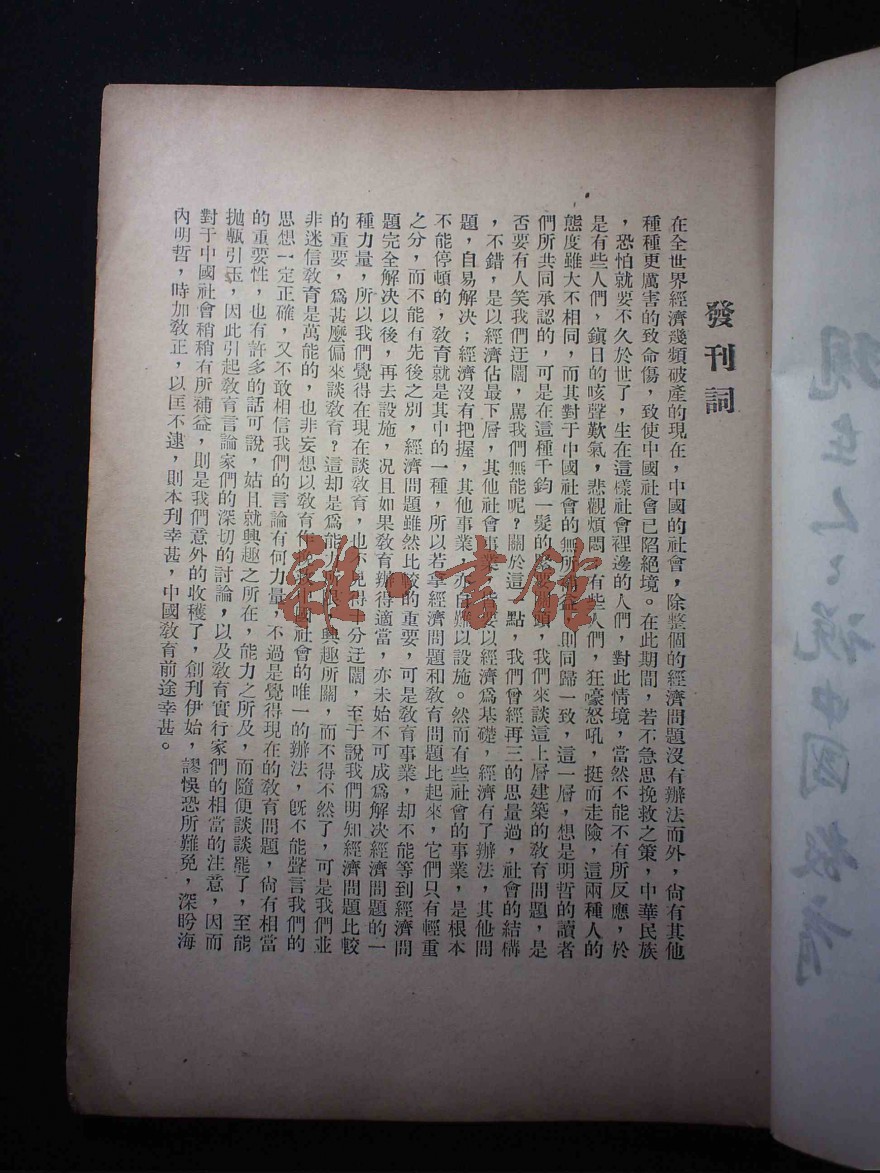 發刊詞
在全世界經濟幾頻破產的現在，中國的社會，除整個的經濟問題沒有辦法而外，尙有其他
種種更厲害的致命傷，致使中國社會已陷絕境。在此期間，若不急思挽救之策，中華民族
，恐怕就要不久於世了，生在這樣社會裡邊的人們，對此情境，當然不能不有所反應，於
是有些人們，鎭日的咳聲歎氣，悲觀煩悶，有些人們，狂豪怒吼，挺而走險，這兩種人的
態度雖大不相同，而其對于中國社會的無所補益，則同歸一致，這一層，想是明哲的讀者
們所共同承認的，可是在這種千鈞一髮的緊要關頭，我們來談這上層建築的敎育問題，是
否要有人笑我們迂闊，罵我們無能呢？關於這一點，我們曾經再三的思量過，社會的結構
，不錯，是以經濟佔最下層，其他社會事業，皆要以經濟爲基礎，經濟有了辦法，其他問
題，自易解决；經濟沒有把握，其他事業，亦皆難以設施。然而有些社會的事業，是根本
不能停頓的，敎育就是其中的一種，所以若拿經濟問題和敎育問題比起來，它們只有輕重
之分，而不能有先後之別，經濟問題雖然比較的重要，可是敎育事業，却不能等到經濟問
題完全解决以後，再去設施，况且如果敎育辦得適當，亦未始不可成爲解决經濟問題的一
種力量，所以我們覺得在現在談敎育，也不見得十分迂闊，至于說我們明知經濟問題比較
的重要，爲甚麽偏來談敎育？這却是爲能力所限，興趣所關，而不得不然了，可是我們並
非迷信敎育是萬能的，也非妄想以敎育作救中國社會的唯一的辦法，旣不能聲言我們的
思想一定正確，又不敢相信我們的言論有何力量，不過是覺得現在的敎育問題，尙有相當
的重要性，也有許多的話可說，姑且就興趣之所在，能力之所及，而隨便談談罷了，至能
拋甎引玉，因此引起敎育言論家們的深切的討論，以及敎育實行家們的相當的注意，因而
對于中國社會稍稍有所補益，則是我們意外的收穫了，創刊伊始，謬悞恐所難免，深盼海
內明哲，時加敎正，以匡不逮，則本刋幸甚，中國敎育前途幸甚。
雜·書館